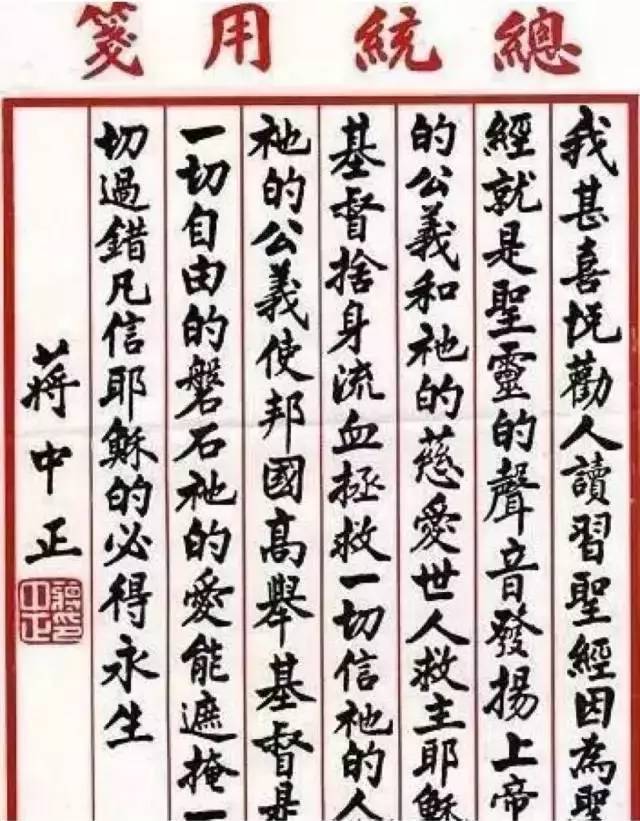 總統用箋
我甚喜悅勸人讀習聖經因為聖
經就是聖靈的聲音發揚上帝
的公義和祂的慈愛世人救主耶穌
基督捨身流血拯救一切信祂的人
祂的公義使邦國高舉基督是
一切自由的磐石祂的愛能遮掩一
切過錯凡信耶穌的必得永生
蔣中正
蔣中正印